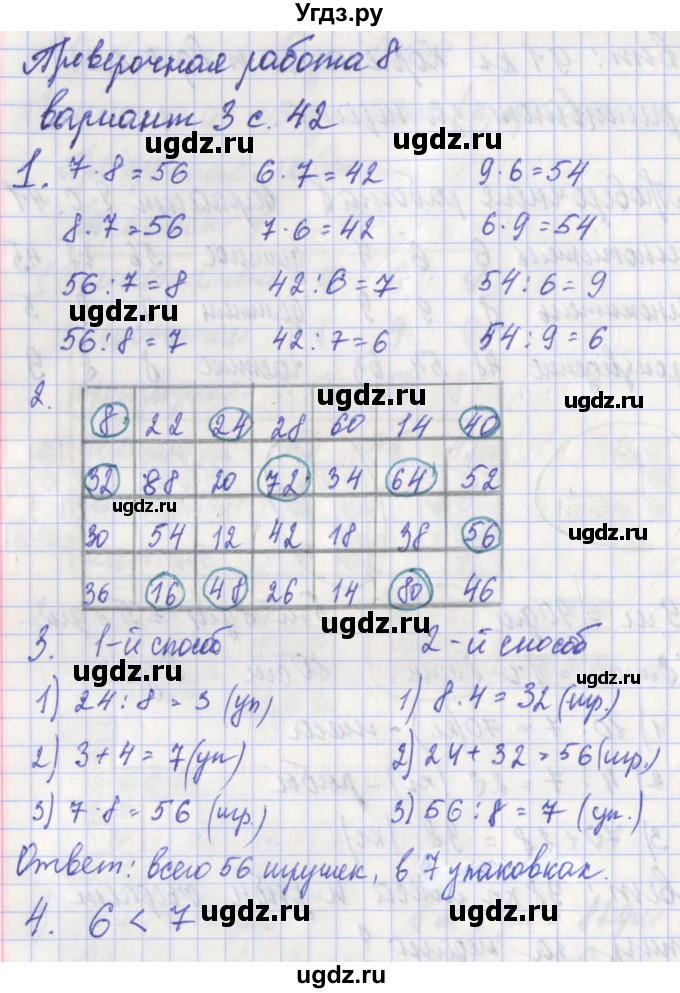 Угдз.ру
Проверочная работа 8
вариант 3 с. 42
ugdz.ru ugdz.ru
1. 7·8=56 6·7=42 9·6=54
8·7=56 7·6=42 6·9=54
56:7=8 42:6=7 54:6=9
ugdz.ru
56:8=7 42:7=6 54:9=6
ugdz.ru ugdz.ru
2.
8 22 24 28 60 14 40
32 88 20 72 34 64 52
ugdz.ru ugdz.ru
30 54 12 42 18 38 56
36 16 48 26 14 80 46
ugdz.ru
3. 1-й способ 2-й способ
ugdz.ru
1) 24:8=3 (уп) 1) 8·4=32 (игр.)
ugdz.ru
2) 3+4=7 (уп) 2) 24+32=56 (игр.)
ugdz.ru
3) 7·8=56 (игр) 3) 56:8=7 (уп.)
ugdz.ru
Ответ: всего 56 игрушек, в 7 упаковках.
4. 6<7
ugdz.ru ugdz.ru
ugdz.ru